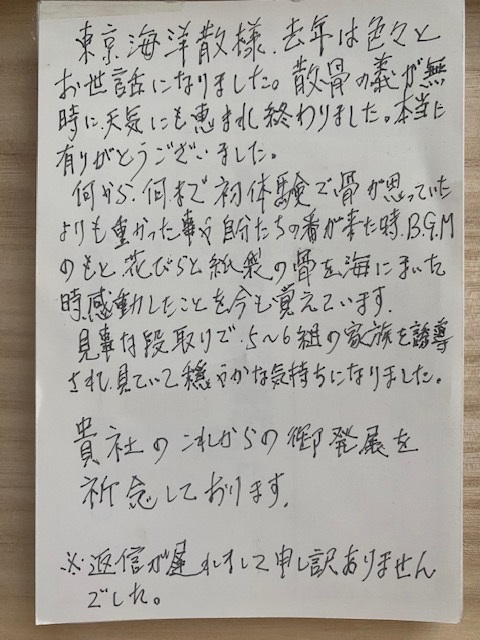 東京海洋散様.去年は色々と
お世話になりました。散骨の義が無
時に.天気にも恵まれ終わりました。本当に
有りがとうございました。
何から.何まで初体験で骨が思っていた
よりも重かった事や自分たちの番が来た時.B.G.M
のもと花びらと紙袋の骨を海にまいた
時.感動したことを今も覚えています.
見事な段取りで.5〜6組の家族を誘導
され見ていて穏やかな気持ちになりました。
貴社のこれからの御発展を
祈念しております.
※返信が遅れまして申し訳ありません
でした。